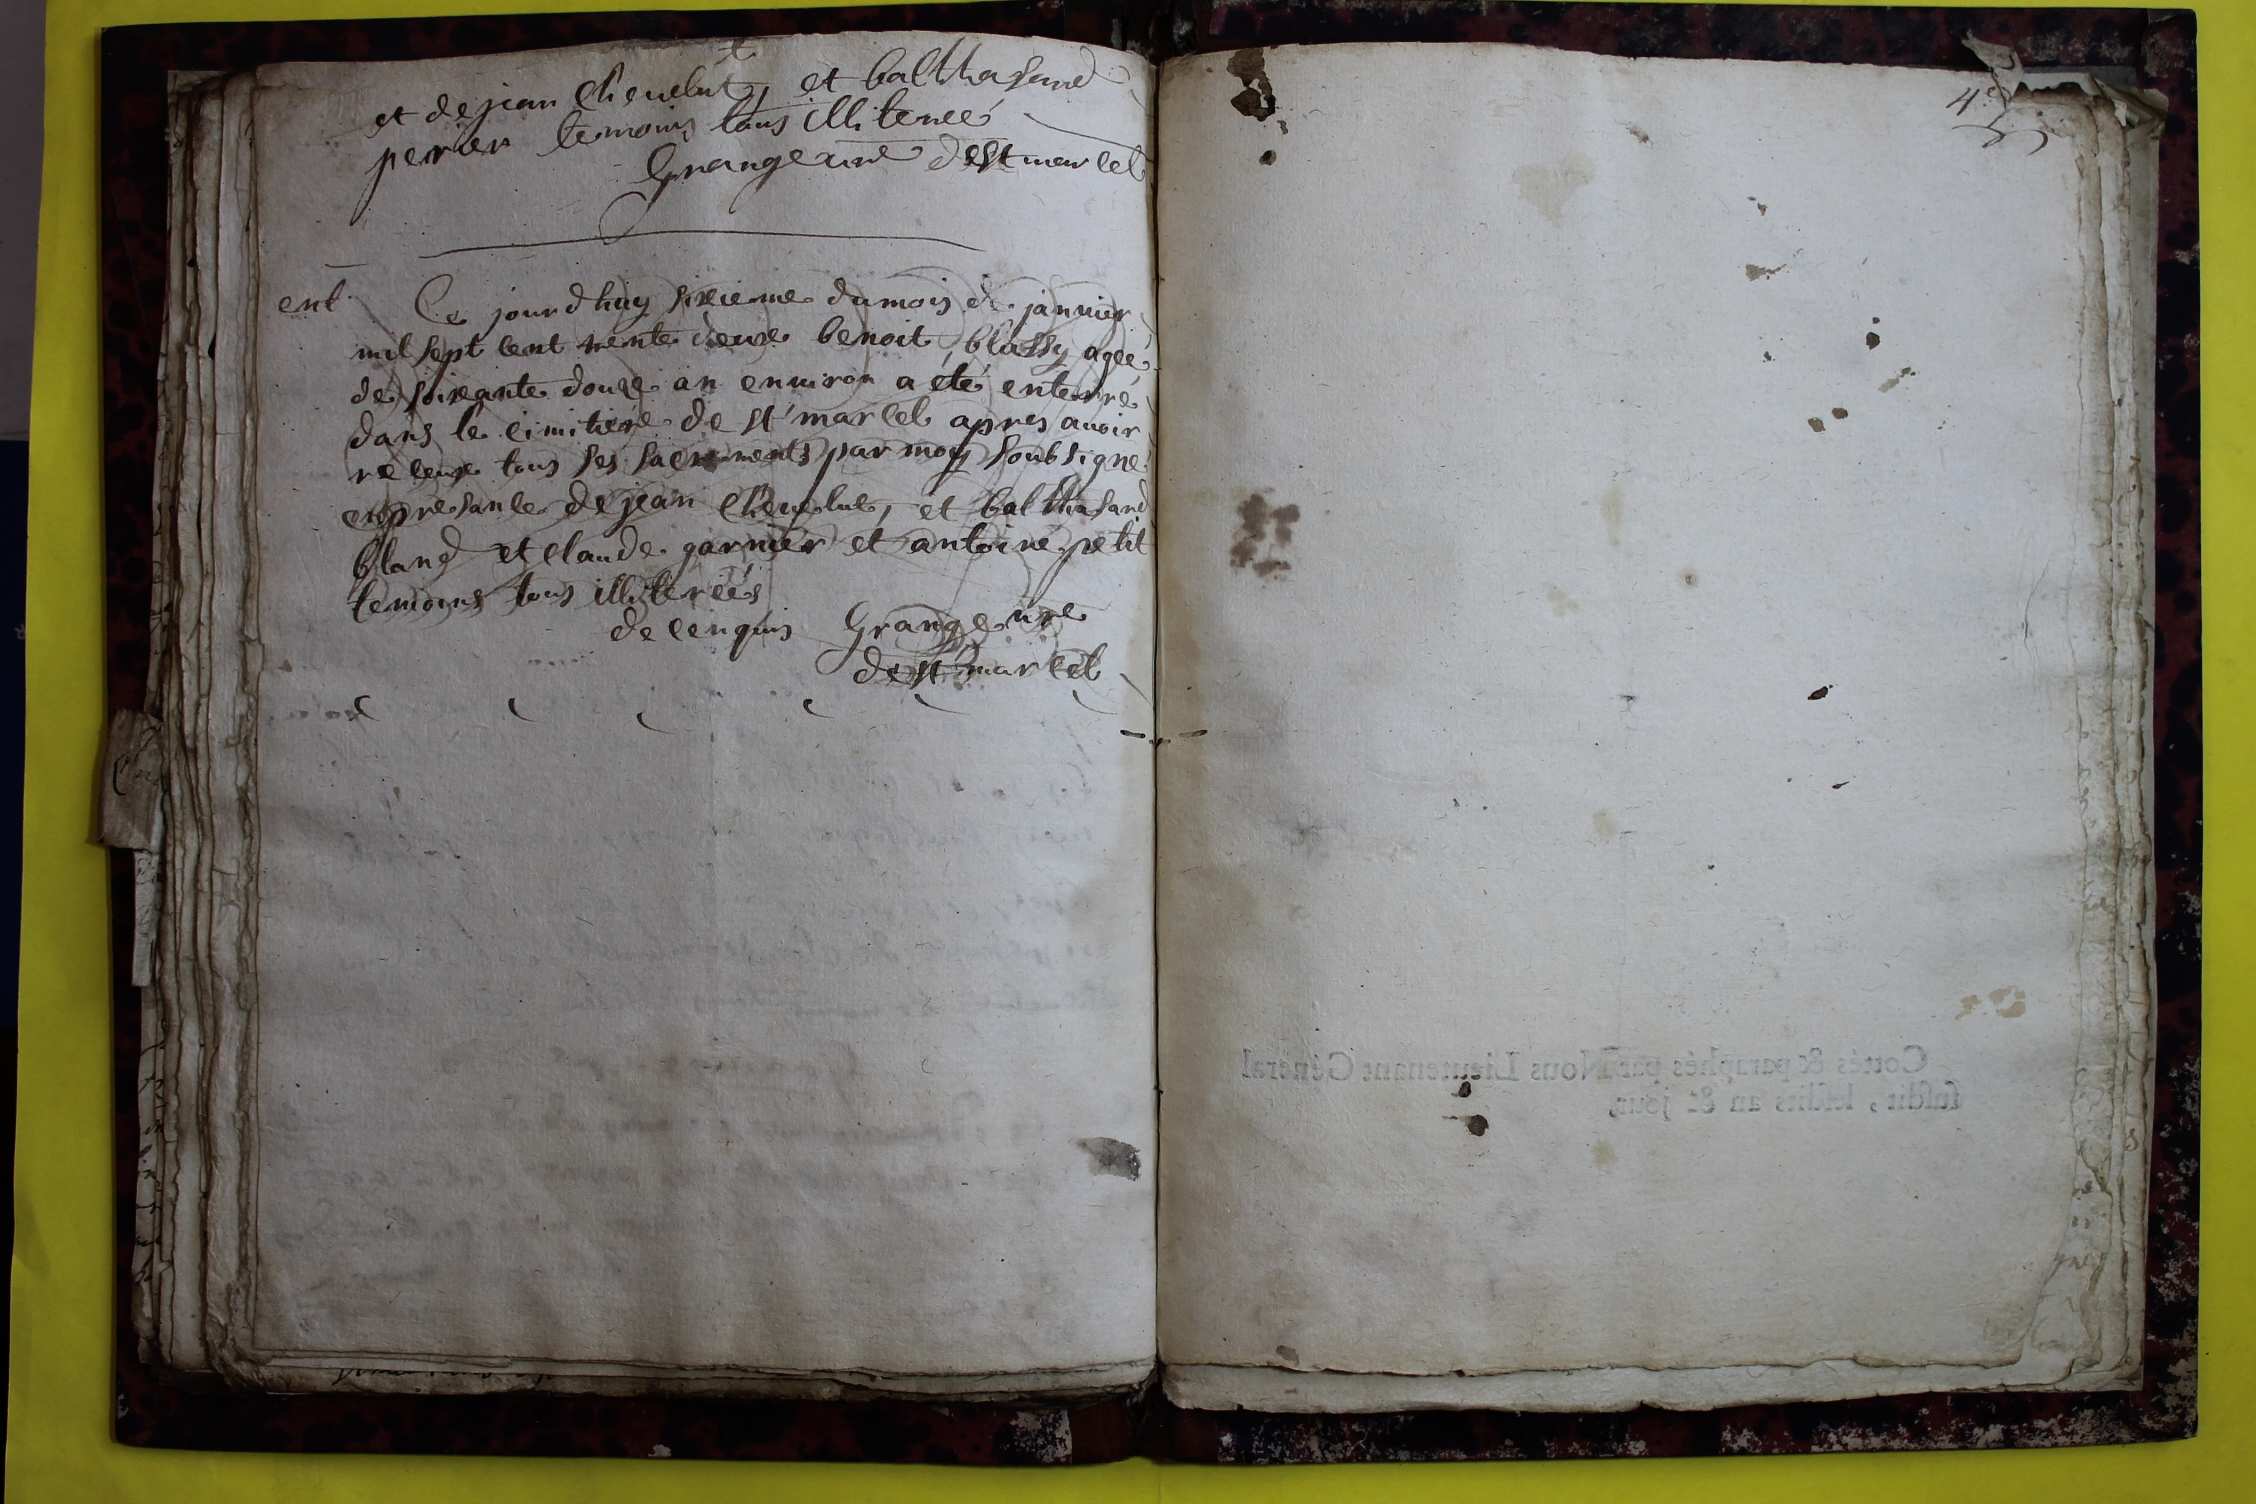 et de jean cheuelut, et balthasard
perier temoins tous illiterée
Grange curé de st marcel
ent
Ce jourdhuy sixieme du mois de januier
mil sept cent trente deux benoit blassy agée
de soixante douze an enuiron a été enterré
dans le cimitiere de st marcel apres auoir
receux tous ses sacrements par moy soubsigné
en presance de jean cheuelut, et balthasard
bland et claude garnier et antoine petit
temoins tous illiterées
de ce enquis Grange curé
de st marcel
4e
Cottés & paraphés par Nous Lieutenant Général
susdit, lesdits an & jour,